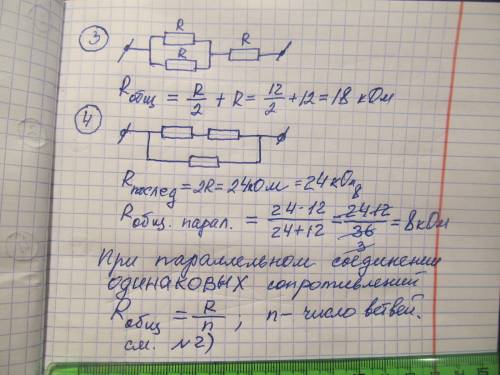 3
R
R
R
Rобщ = R/2 + R = 12/2 + 12 = 18 кОм
4
Rпослед = 2R = 24кОм = 24кОм
Rобщ. парал. = 24·12/24+12 = 24·12/36 = 8кОм
3
При параллельном соединении
одинаковых сопротивлений
Rобщ = R/n ; n – число ветвей.
см. №2)